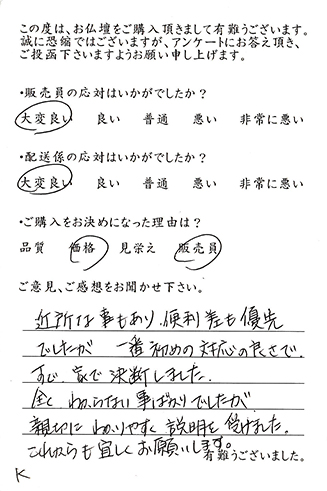 この度は、お仏壇をご購入頂きまして有難うございます。
誠に恐縮ではございますが、アンケートにお答え頂き、
ご投函下さいますようお願い申し上げます。
・販売員の応対はいかがでしたか？
大変良い 良い 普通 悪い 非常に悪い
・配送係の応対はいかがでしたか？
大変良い 良い 普通 悪い 非常に悪い
・ご購入をお決めになった理由は？
品質 価格 見栄え 販売員
ご意見、ご感想をお聞かせ下さい。
近所な事もあり、便利差も優先
でしたが 一番初めの対応の良さで、
すぐ、家で決断しました。
全く わからない事ばかりでしたが
親切に わかりやすく 説明を 受けました。
これからも宜しくお願いします。
有難うございました。
K